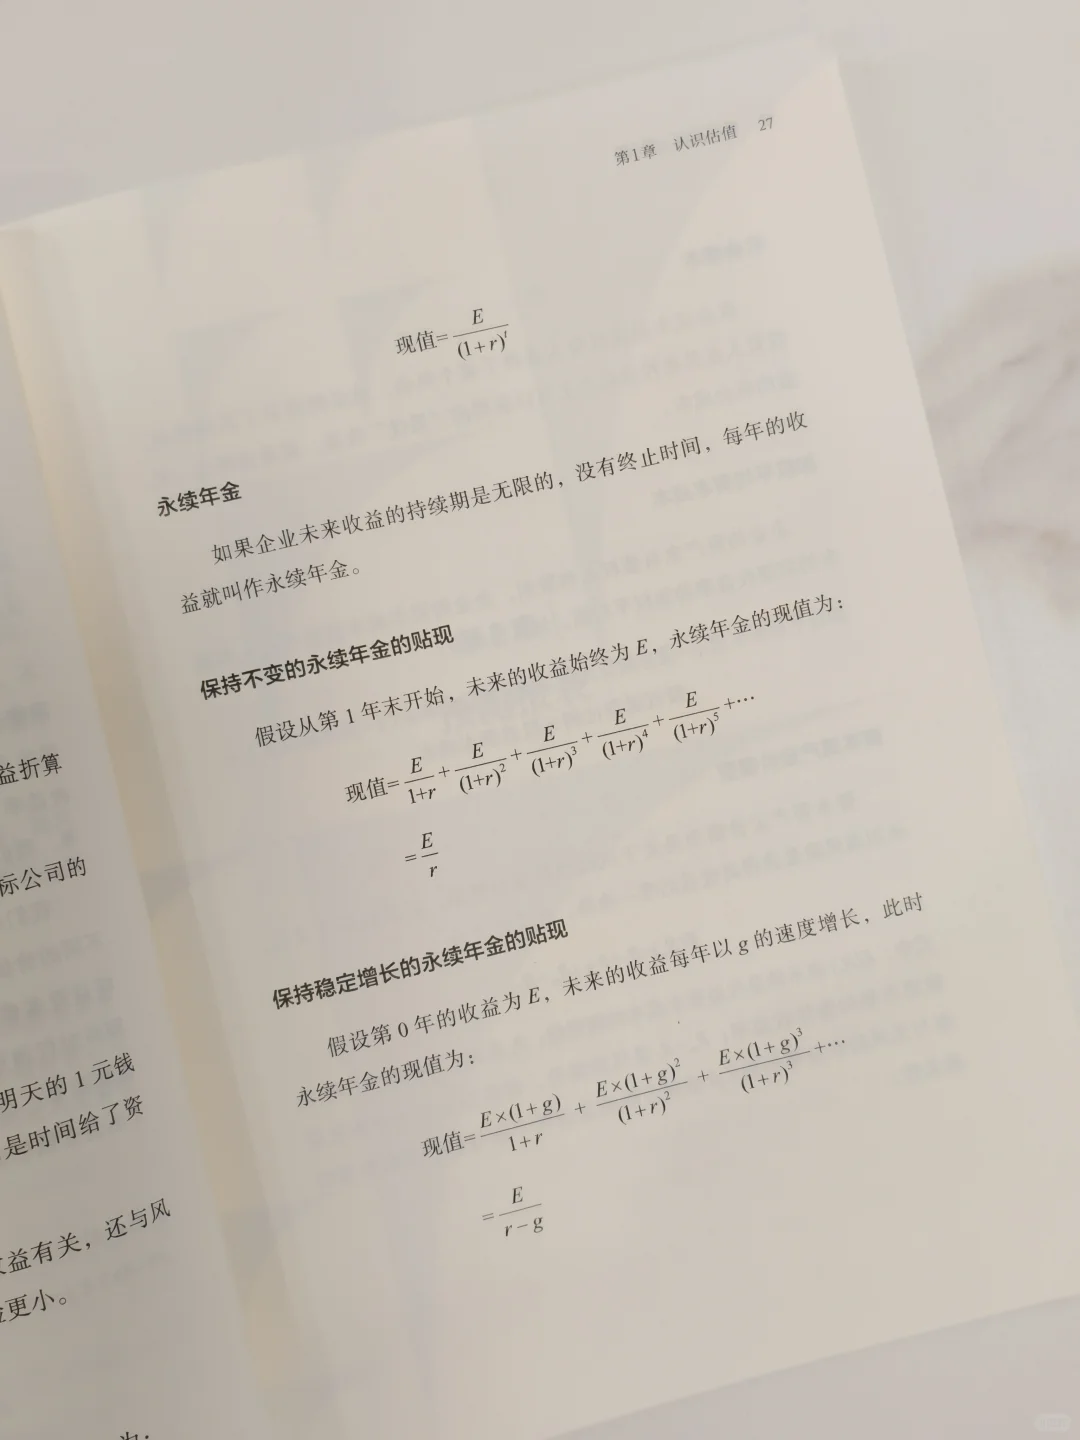 益折算
标公司的
明天的 1 元钱
是时间给了资
益有关，还与风
更小。
第1章 认识估值 27
现值=E/(1+r)^t
永续年金
如果企业未来收益的持续期是无限的，没有终止时间，每年的收
益就叫作永续年金。
保持不变的永续年金的贴现
假设从第 1 年末开始，未来的收益始终为 E，永续年金的现值为：
现值=E/(1+r)+E/(1+r)^2+E/(1+r)^3+E/(1+r)^4+E/(1+r)^5+…
=E/r
保持稳定增长的永续年金的贴现
假设第 0 年的收益为 E，未来的收益每年以 g 的速度增长，此时
永续年金的现值为：
现值=E×(1+g)/(1+r)+E×(1+g)^2/(1+r)^2+E×(1+g)^3/(1+r)^3+…
=E/(r-g)